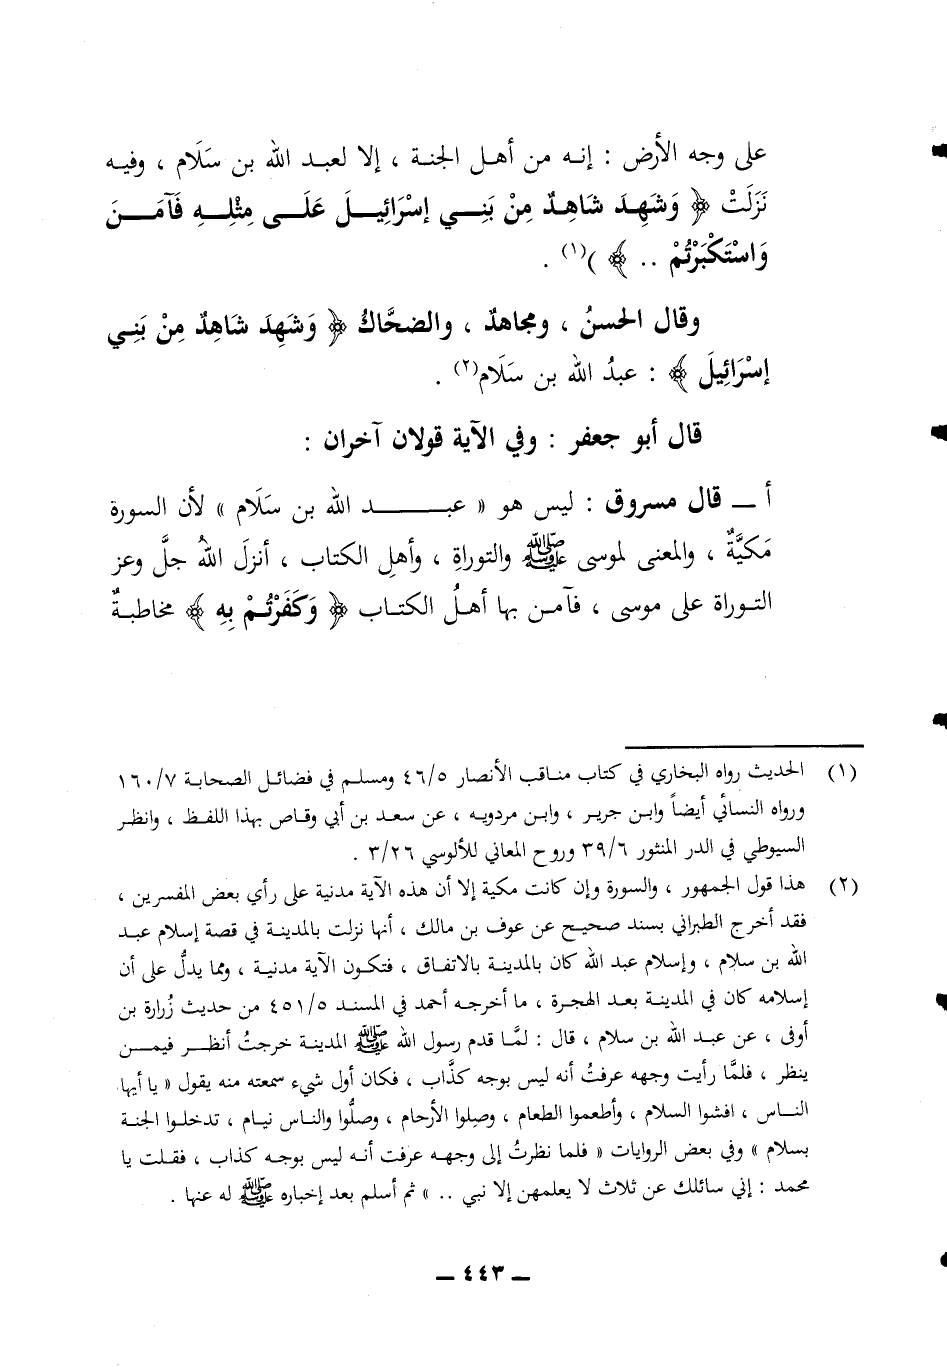 على وجه الأرض : إنه من أهل الجنة ، إلا لعبد الله بن سَلَام ، وفيه
نَزَلَتْ ﴿ وَشَهِدَ شَاهِدٌ مِنْ بَنِي إسْرَائِيلَ عَلَى مِثْلِهِ فَآمَنَ
وَاسْتَكْبَرْتُمْ .. ﴾ )(١) .
وقال الحسنُ ، ومجاهدٌ ، والضحَّاكُ ﴿ وَشَهِدَ شَاهِدٌ مِنْ بَنِي
إسْرَائِيلَ ﴾ : عبدُ الله بن سَلَام(٢) .
قال أبو جعفر : وفي الآية قولان آخران :
أ ــ قال مسروق : ليس هو « عبد الله بن سَلَام » لأن السورة
مَكيَّةٌ ، والمعنى لموسى ﷺ والتوراةِ ، وأهلِ الكتاب ، أنزلَ اللهُ جلَّ وعز
التوراة على موسى ، فآمن بها أهلُ الكتاب ﴿ وَكَفَرْتُمْ بِهِ ﴾ مخاطبةٌ
(١) الحديث رواه البخاري في كتاب مناقب الأنصار ٤٦/٥ ومسلم في فضائل الصحابة ١٦٠/٧
ورواه النسائي أيضاً وابن جرير ، وابن مردويه ، عن سعد بن أبي وقاص بهذا اللفظ ، وانظر
السيوطي في الدر المنثور ٣٩/٦ وروح المعاني للألوسي ٣/٢٦ .
(٢) هذا قول الجمهور ، والسورة وإن كانت مكية إلا أن هذه الآية مدنية على رأي بعض المفسرين ،
فقد أخرج الطبراني بسند صحيح عن عوف بن مالك ، أنها نزلت بالمدينة في قصة إسلام عبد
الله بن سلام ، وإسلام عبد الله كان بالمدينة بالاتفاق ، فتكون الآية مدنية ، ومما يدلُّ على أن
إسلامه كان في المدينة بعد الهجرة ، ما أخرجه أحمد في المسند ٤٥١/٥ من حديث زُرارة بن
أوفى ، عن عبد الله بن سلام ، قال : لمَّا قدم رسول الله ﷺ المدينة خرجتُ أنظر فيمن
ينظر ، فلمَّا رأيت وجهه عرفتُ أنه ليس بوجه كذَّاب ، فكان أول شيء سمعته منه يقول « يا أيها
الناس ، افشوا السلام ، وأطعموا الطعام ، وصِلوا الأرحام ، وصلُّوا والناس نيام ، تدخلوا الجنة
بسلام » وفي بعض الروايات « فلما نظرتُ إلى وجهه عرفت أنه ليس بوجه كذاب ، فقلت يا
محمد : إني سائلك عن ثلاث لا يعلمهن إلا نبي .. » ثم أسلم بعد إخباره ﷺ له عنها .
ــ ٤٤٣ ــ